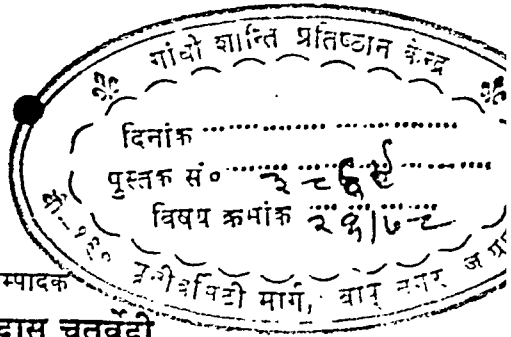 गांधी शान्ति प्रतिष्ठान केन्द्र
दिनांक
पुस्तक सं० २८६९
विषय क्रमांक २९/७८
बी-१९० यूनीवर्सिटी मार्ग, बापू नगर
म्पादक
दास चतुर्वेदी